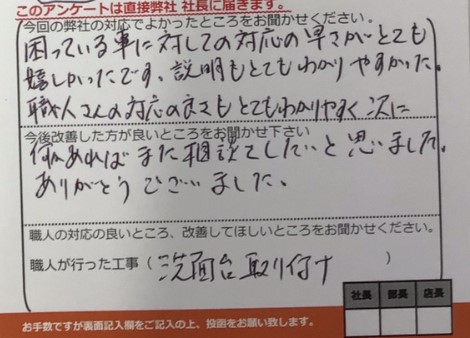 このアンケートは直接弊社 社長に届きます。
今回の弊社の対応でよかったところをお聞かせください。
困っている事に対しての対応の早さがとても
嬉しかったです、説明もとてもわかりやすかった。
職人さんの対応の良さもとてもわかりやすく次に
今後改善した方が良いところをお聞かせ下さい
何かあればまた相談てしたいと思いました。
ありがとうございました。
職人の対応の良いところ、改善してほしいところをお聞かせください。
職人が行った工事（洗面台取り付け）
社長 部長 店長
お手数ですが裏面記入欄をご記入の上、投函をお願い致します。